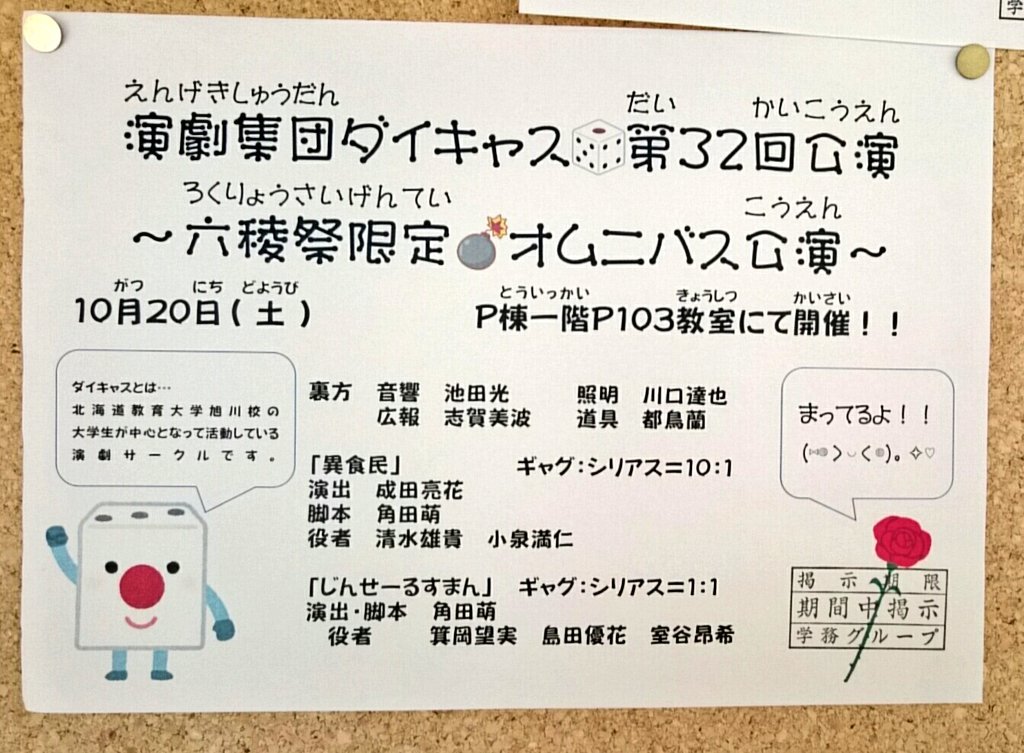 えんげきしゅうだん だい かいこうえん
演劇集団ダイキャス 第32回公演
ろくりょうさいげんてい こうえん
～六稜祭限定 オムニバス公演～
がつ にち どようび とういっかい きょうしつ かいさい
10月20日(土) P棟一階P103教室にて開催！！
ダイキャスとは…
北海道教育大学旭川校の
大学生が中心となって活動している
演劇サークルです。
裏方 音響 池田光 照明 川口達也
広報 志賀美波 道具 都鳥蘭
「異食民」 ギャグ:シリアス=10:1
演出 成田亮花
脚本 角田萌
役者 清水雄貴 小泉満仁
「じんせーるすまん」 ギャグ:シリアス=1:1
演出・脚本 角田萌
役者 箕岡望実 島田優花 室谷昂希
まってるよ！！
掲示期限
期間中掲示
学務グループ
学